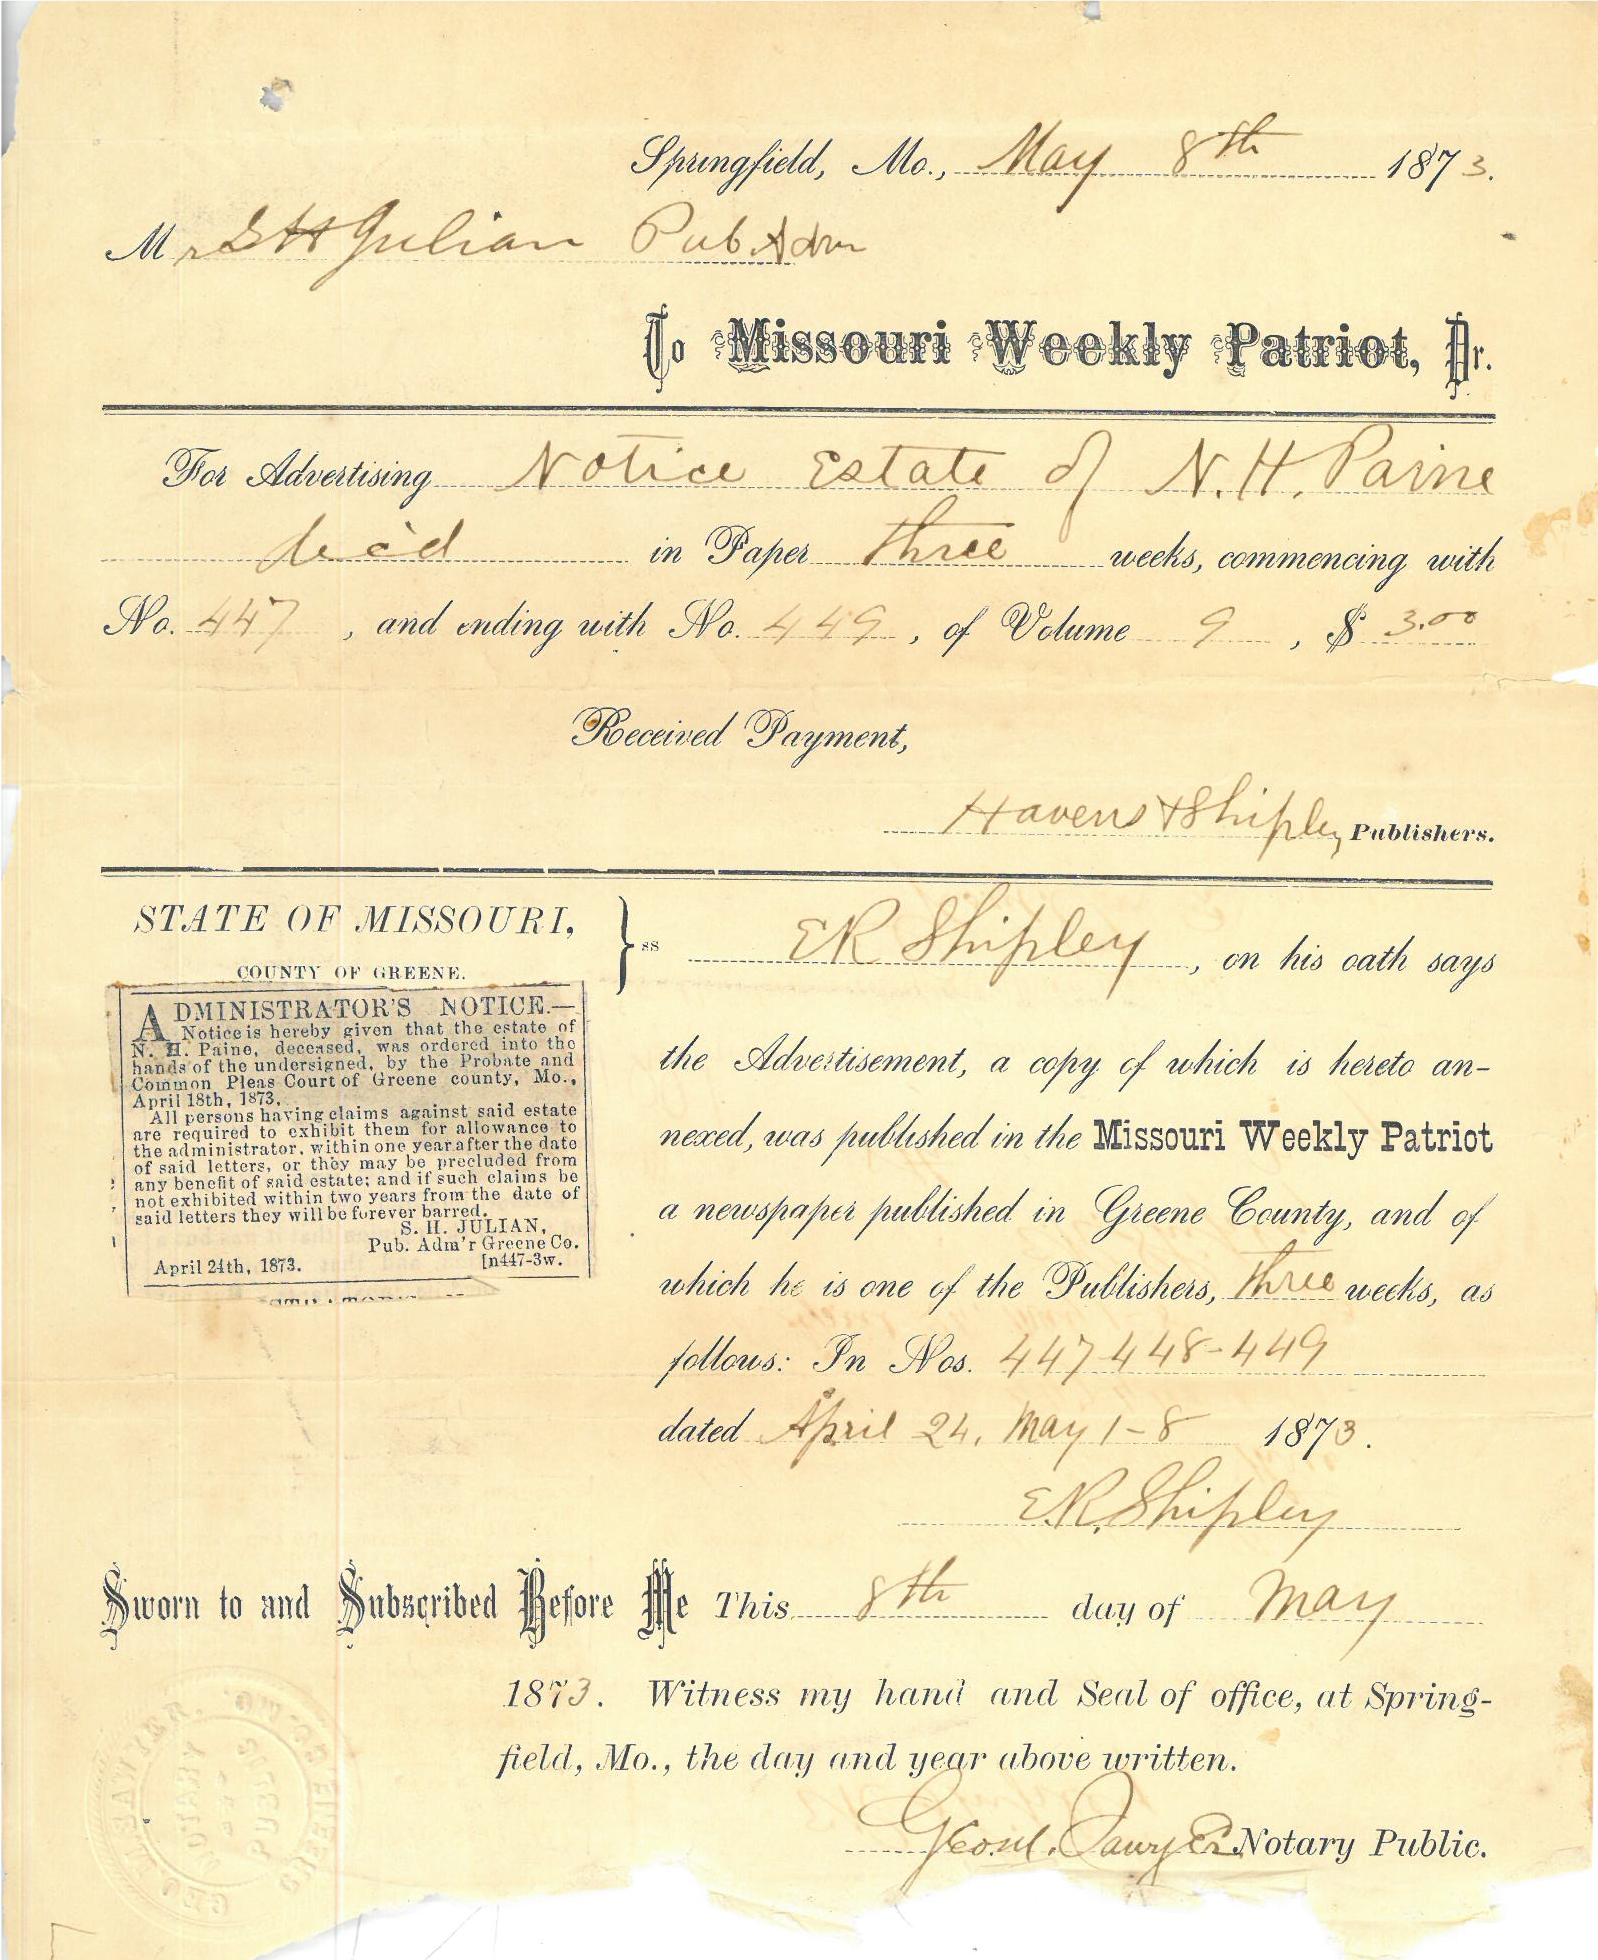 Springfield, Mo., May 8th 1873.
Mr S H Julian Pub Adm
To Missouri Weekly Patriot, Dr.
For Advertising Notice Estate of N. H. Paine
dec'd in Paper three weeks, commencing with
No. 447, and ending with No. 449, of Volume 9, $ 3.00
Received Payment,
Havens & Shipley Publishers.
STATE OF MISSOURI,
COUNTY OF GREENE.
} ss
ADMINISTRATOR'S NOTICE.—
Notice is hereby given that the estate of
N. H. Paine, deceased, was ordered into the
hands of the undersigned, by the Probate and
Common Pleas Court of Greene county, Mo.,
April 18th, 1873.
All persons having claims against said estate
are required to exhibit them for allowance to
the administrator, within one year after the date
of said letters, or they may be precluded from
any benefit of said estate; and if such claims be
not exhibited within two years from the date of
said letters they will be forever barred.
S. H. JULIAN,
Pub. Adm'r Greene Co.
April 24th, 1873. [n447-3w.
E R Shipley, on his oath says
the Advertisement, a copy of which is hereto an-
nexed, was published in the Missouri Weekly Patriot
a newspaper published in Greene County, and of
which he is one of the Publishers, three weeks, as
follows: In Nos. 447 448-449
dated April 24, May 1-8 1873.
E. R. Shipley
Sworn to and Subscribed Before Me This 8th day of May
1873. Witness my hand and Seal of office, at Spring-
field, Mo., the day and year above written.
Geo. M. Sawyer Notary Public.
NOTARY
PUBLIC